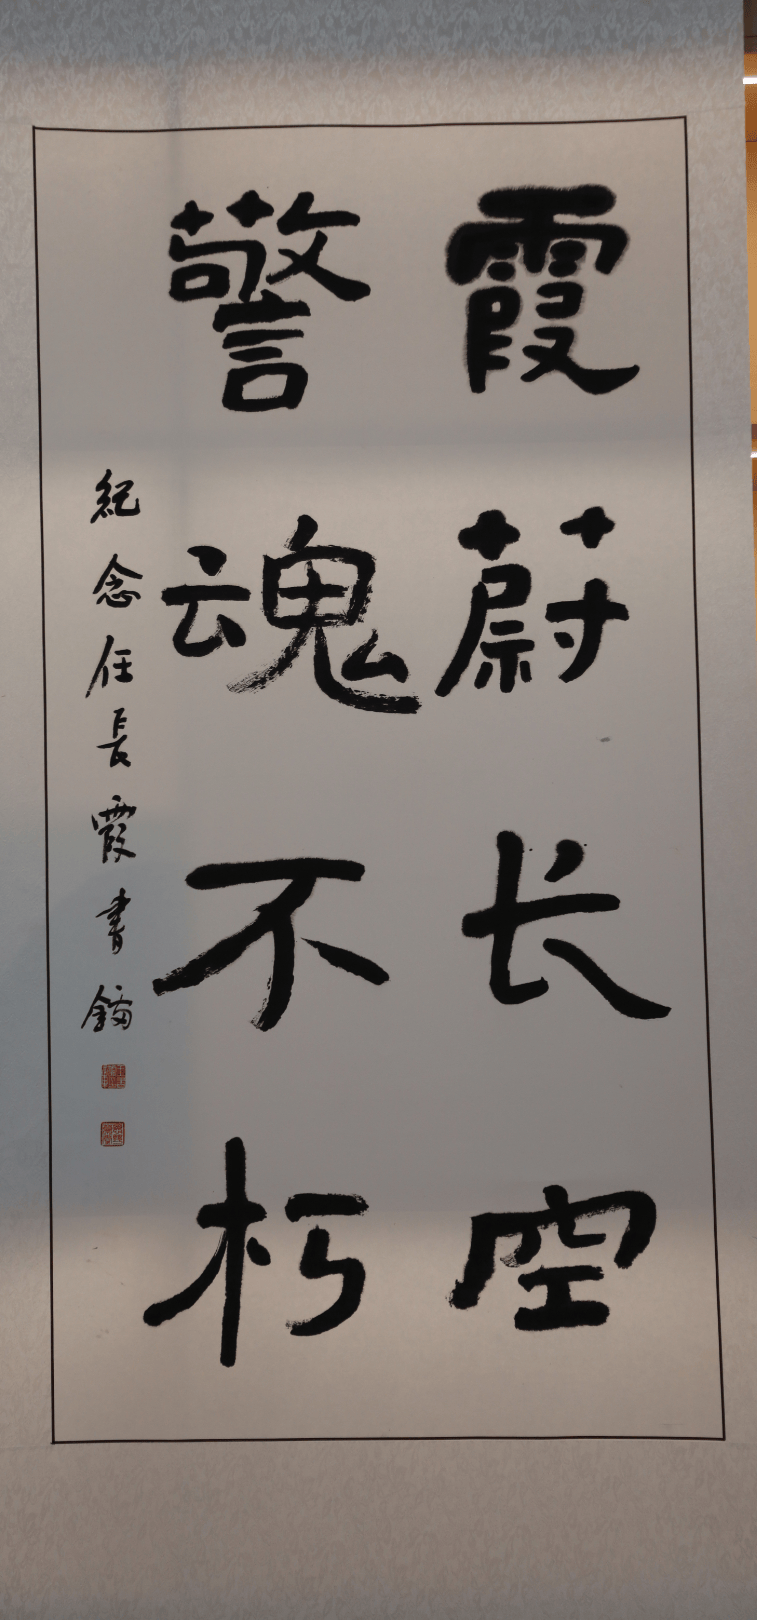 霞蔚长空
警魂不朽
紀念任長霞書